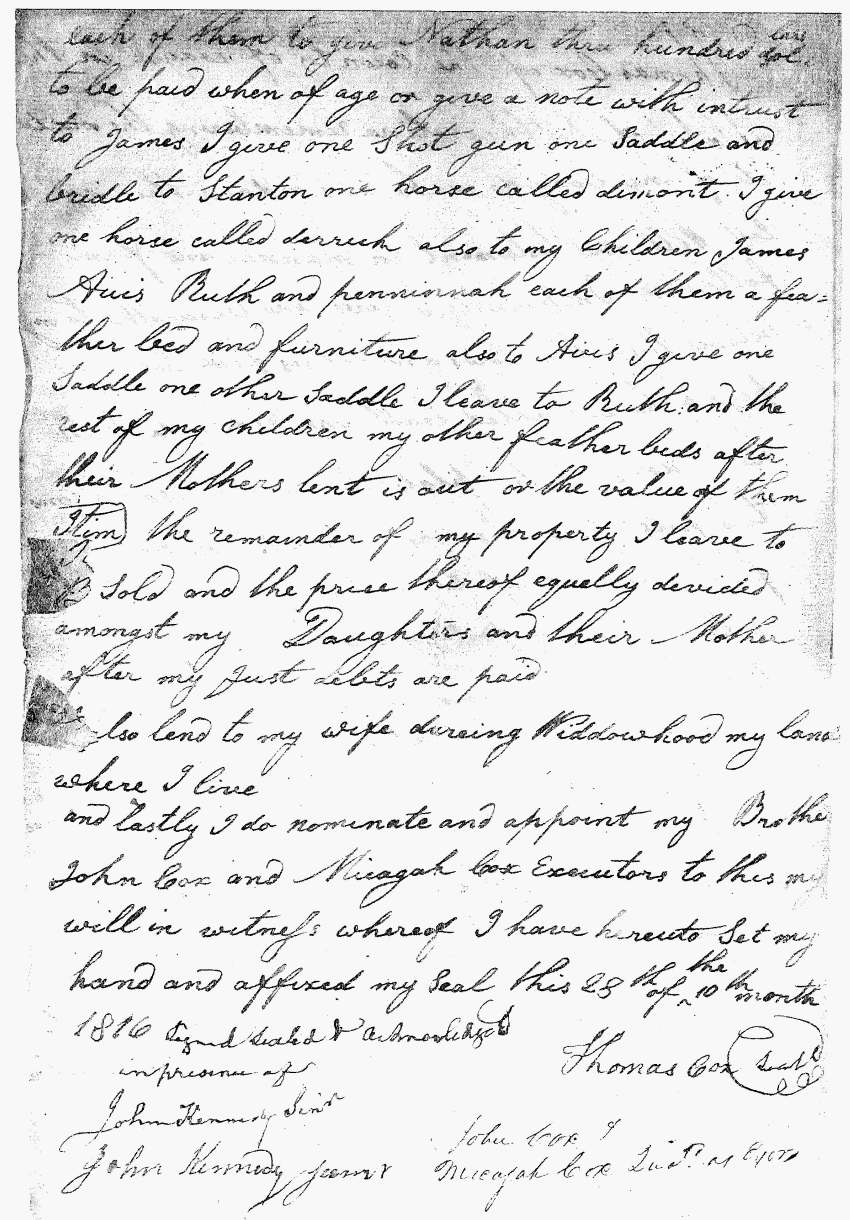 each of them to give Nathan three hundred dol.
to be paid when of age or give a note with intrust
to James I give one Shot gun one Saddle and
bridle to Stanton one horse called dimont I give
one horse called derrick also to my Children James
Avis Ruth and penninnah each of them a fea=
ther bed and furniture also to Avis I give one
Saddle one other Saddle I leave to Ruth and the
rest of my children my other feather beds after
their Mothers lent is out or the value of them
Itim the remainder of my property I leave to
B Sold and the price thereof equelly devided
amongst my Daughters and their Mother
after my Just debts are paid
Also lend to my wife dureing Widdowhood my land
where I live
and Lastly I do nominate and appoint my Brothe
John Cox and Micagah Cox Executors to this my
will in witness whereof I have hereuto Set my
hand and affixed my Seal this 28th of the 10th month
1816 Signed Sealed & acknowledged
in presence of
Thomas Cox Seal
John Kennedy Sinr
John Kennedy junr
John Cox
Micajah Cox as Exors